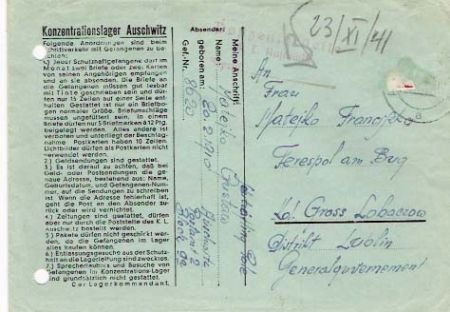 Konzentrationslager Auschwitz
Folgende Anordnungen sind beim
Schriftverkehr mit Gefangenen zu be-
achten:
1.) Jeder Schutzhaftgefangene darf im
Monat zwei Briefe oder zwei Karten
von seinen Angehörigen empfangen
und an sie absenden. Die Briefe an
die Gefangenen müssen gut lesbar
mit Tinte geschrieben sein und dür-
fen nur 15 Zeilen auf einer Seite ent-
halten. Gestattet ist nur ein Briefbo-
gen normaler Größe. Briefumschläge
müssen ungefüttert sein. In einem
Briefe dürfen nur 5 Briefmarken à 12 Pfg.
beigelegt werden. Alles andere ist
verboten und unterliegt der Beschlag-
nahme. Postkarten haben 10 Zeilen.
Lichtbilder dürfen als Postkarten nicht
verwendet werden.
2.) Geldsendungen sind gestattet.
3.) Es ist darauf zu achten, daß bei
Geld- oder Postsendungen die ge-
naue Adresse, bestehend aus: Name,
Geburtsdatum, und Gefangenen-Num-
mer, auf die Sendungen zu schreiben
ist. Wenn die Adresse fehlerhaft ist,
geht die Post an den Absender zu-
rück oder wird vernichtet.
4.) Zeitungen sind gestattet, dürfen
aber nur durch die Poststelle des K. L.
Auschwitz bestellt werden.
5.) Pakete dürfen nicht geschickt wer-
den, da die Gefangenen im Lager
alles kaufen können.
6.) Entlassungsgesuche aus der Schutz-
haft an die Lagerleitung sind zwecklos.
7.) Sprecherlaubnis und Besuche von
Gefangenen im Konzentrations-Lager
sind grundsätzlich nicht gestattet.
Der Lagerkommandant.
Absender:
Meine Anschrift:
Name: Matejko
geboren am: 20.2.1910
Gef.-Nr. 8620
23/XI/41
An
Frau
Matejko
Terespol am Bug
Gross
Distrikt Lublin
Generalgouvernement